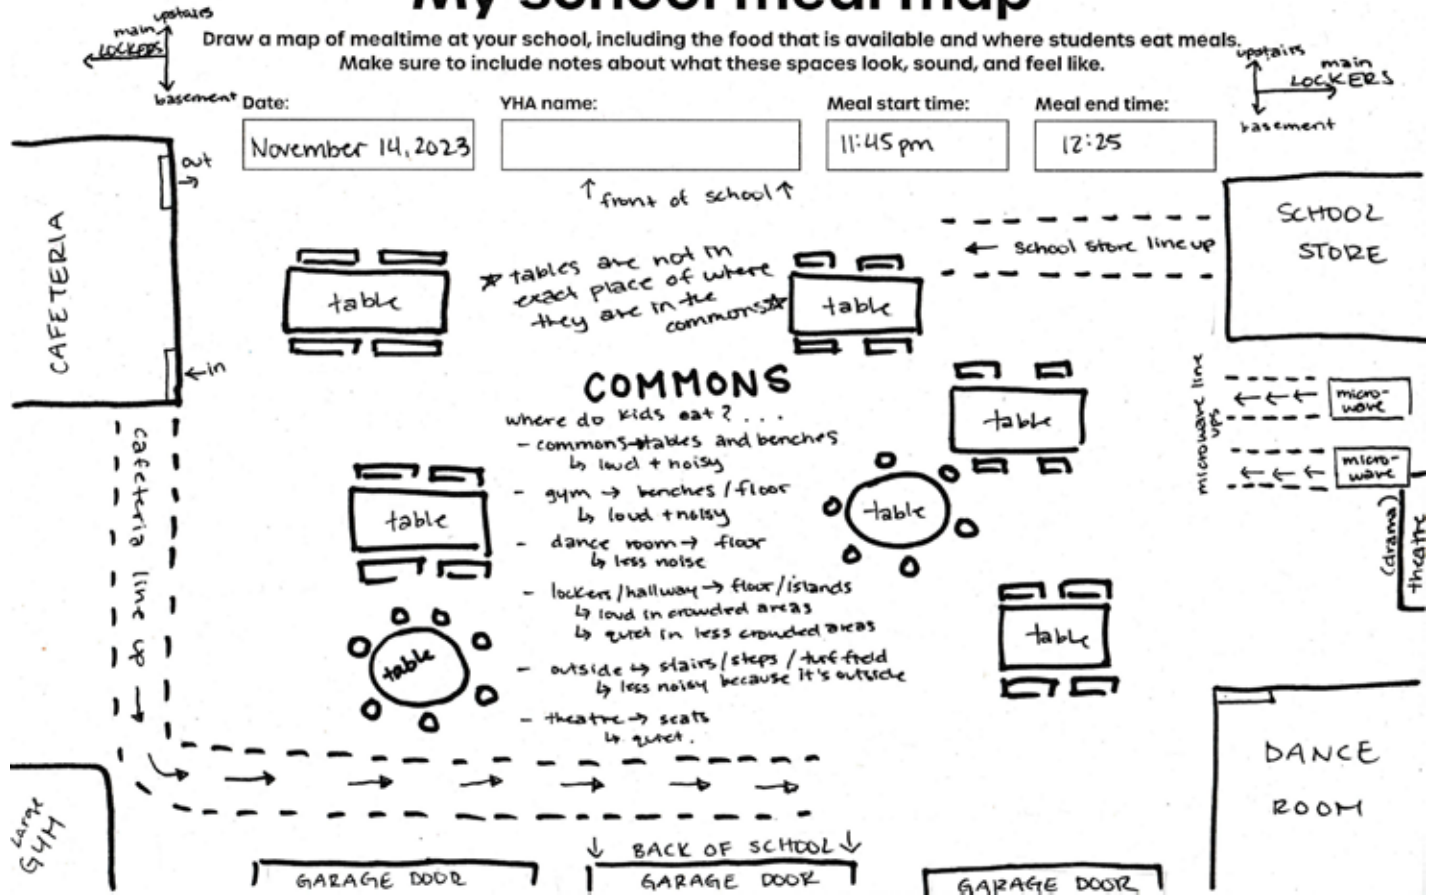 My school meal map
Draw a map of mealtime at your school, including the food that is available and where students eat meals.
Make sure to include notes about what these spaces look, sound, and feel like.
upstairs
main
LOCKERS
basement
upstairs
main
LOCKERS
basement
Date:
November 14, 2023
YHA name:
Meal start time:
11:45 pm
Meal end time:
12:25
↑ front of school ↑
CAFETERIA
out
→
← in
SCHOOL
STORE
← school store line up
table
☆ tables are not in
exact place of where
they are in the
commons ☆
table
COMMONS
where do kids eat? ...
- commons → tables and benches
↳ loud + noisy
- gym → benches / floor
↳ loud + noisy
- dance room → floor
↳ less noise
- lockers / hallway → floor / islands
↳ loud in crowded areas
↳ quiet in less crowded areas
- outside ↔ stairs / steps / turf field
↳ less noisy because it's outside
- theatre → seats
↳ quiet.
table
table
table
table
table
microwave line
ups
← ← ← micro-
wave
← ← ← micro-
wave
(drama)
theatre
cafeteria line up →
→ → → → → → →
Large
GYM
DANCE
ROOM
↓ BACK OF SCHOOL ↓
GARAGE DOOR
GARAGE DOOR
GARAGE DOOR